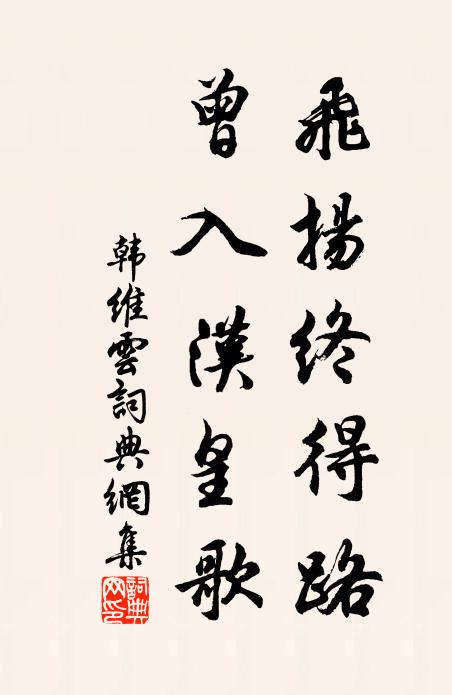 飛揚終得路
曾入漢皇歌
韩維雲詞典網集
詞典网印